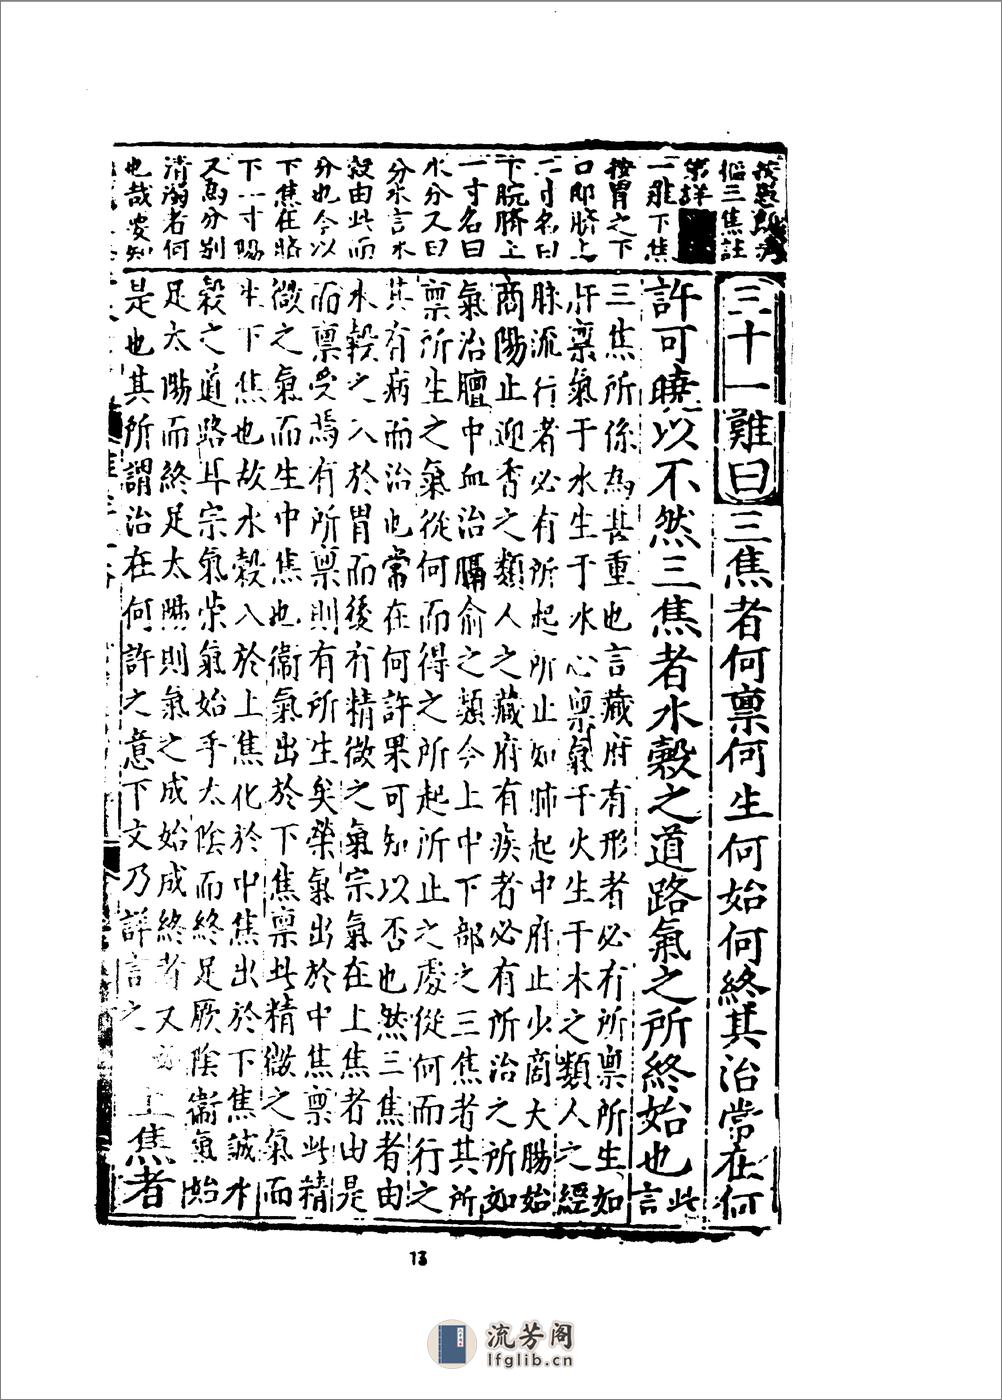 三十一難曰三焦者何稟何生何始何終其治常在何
許可曉以不然三焦者水穀之道路氣之所終始也此言
三焦所係為甚重也言藏府有形者必有所稟所生如
肝稟氣于水生于水心稟氣于火生于木之類人之經
脉流行者必有所起所止如肺起中府止少商大腸始
商陽止迎香之類人之藏府有疾者必有所治之所如
氣治膻中血治膈俞之類今上中下部之三焦者其所
稟所生之氣從何而得之所起所止之處從何而行之
其有病而治也常在何許果可知以否也然三焦者由
水穀之入於胃而後有精微之氣宗氣在上焦者由是
而稟受焉有所稟則有所生矣榮氣出於中焦稟此精
微之氣而生中焦也衞氣出於下焦稟此精微之氣而
生下焦也故水穀入於上焦化於中焦出於下焦誠水
穀之道路耳宗氣榮氣始乎太陰而終足厥陰衞氣始
足太陽而終足太陽則氣之成始成終者又
是也其所謂治在何許之意下文乃詳言之 上焦者
三焦註
第
一難下焦
按胃之下
口即臍上
二寸名曰
下脘臍上
一寸名曰
水分又曰
分水言水
穀由此而
分也今以
下焦在臍
下一寸陽
又為分別
清濁者何
也哉要知
13
流芳阁
lfglib.cn